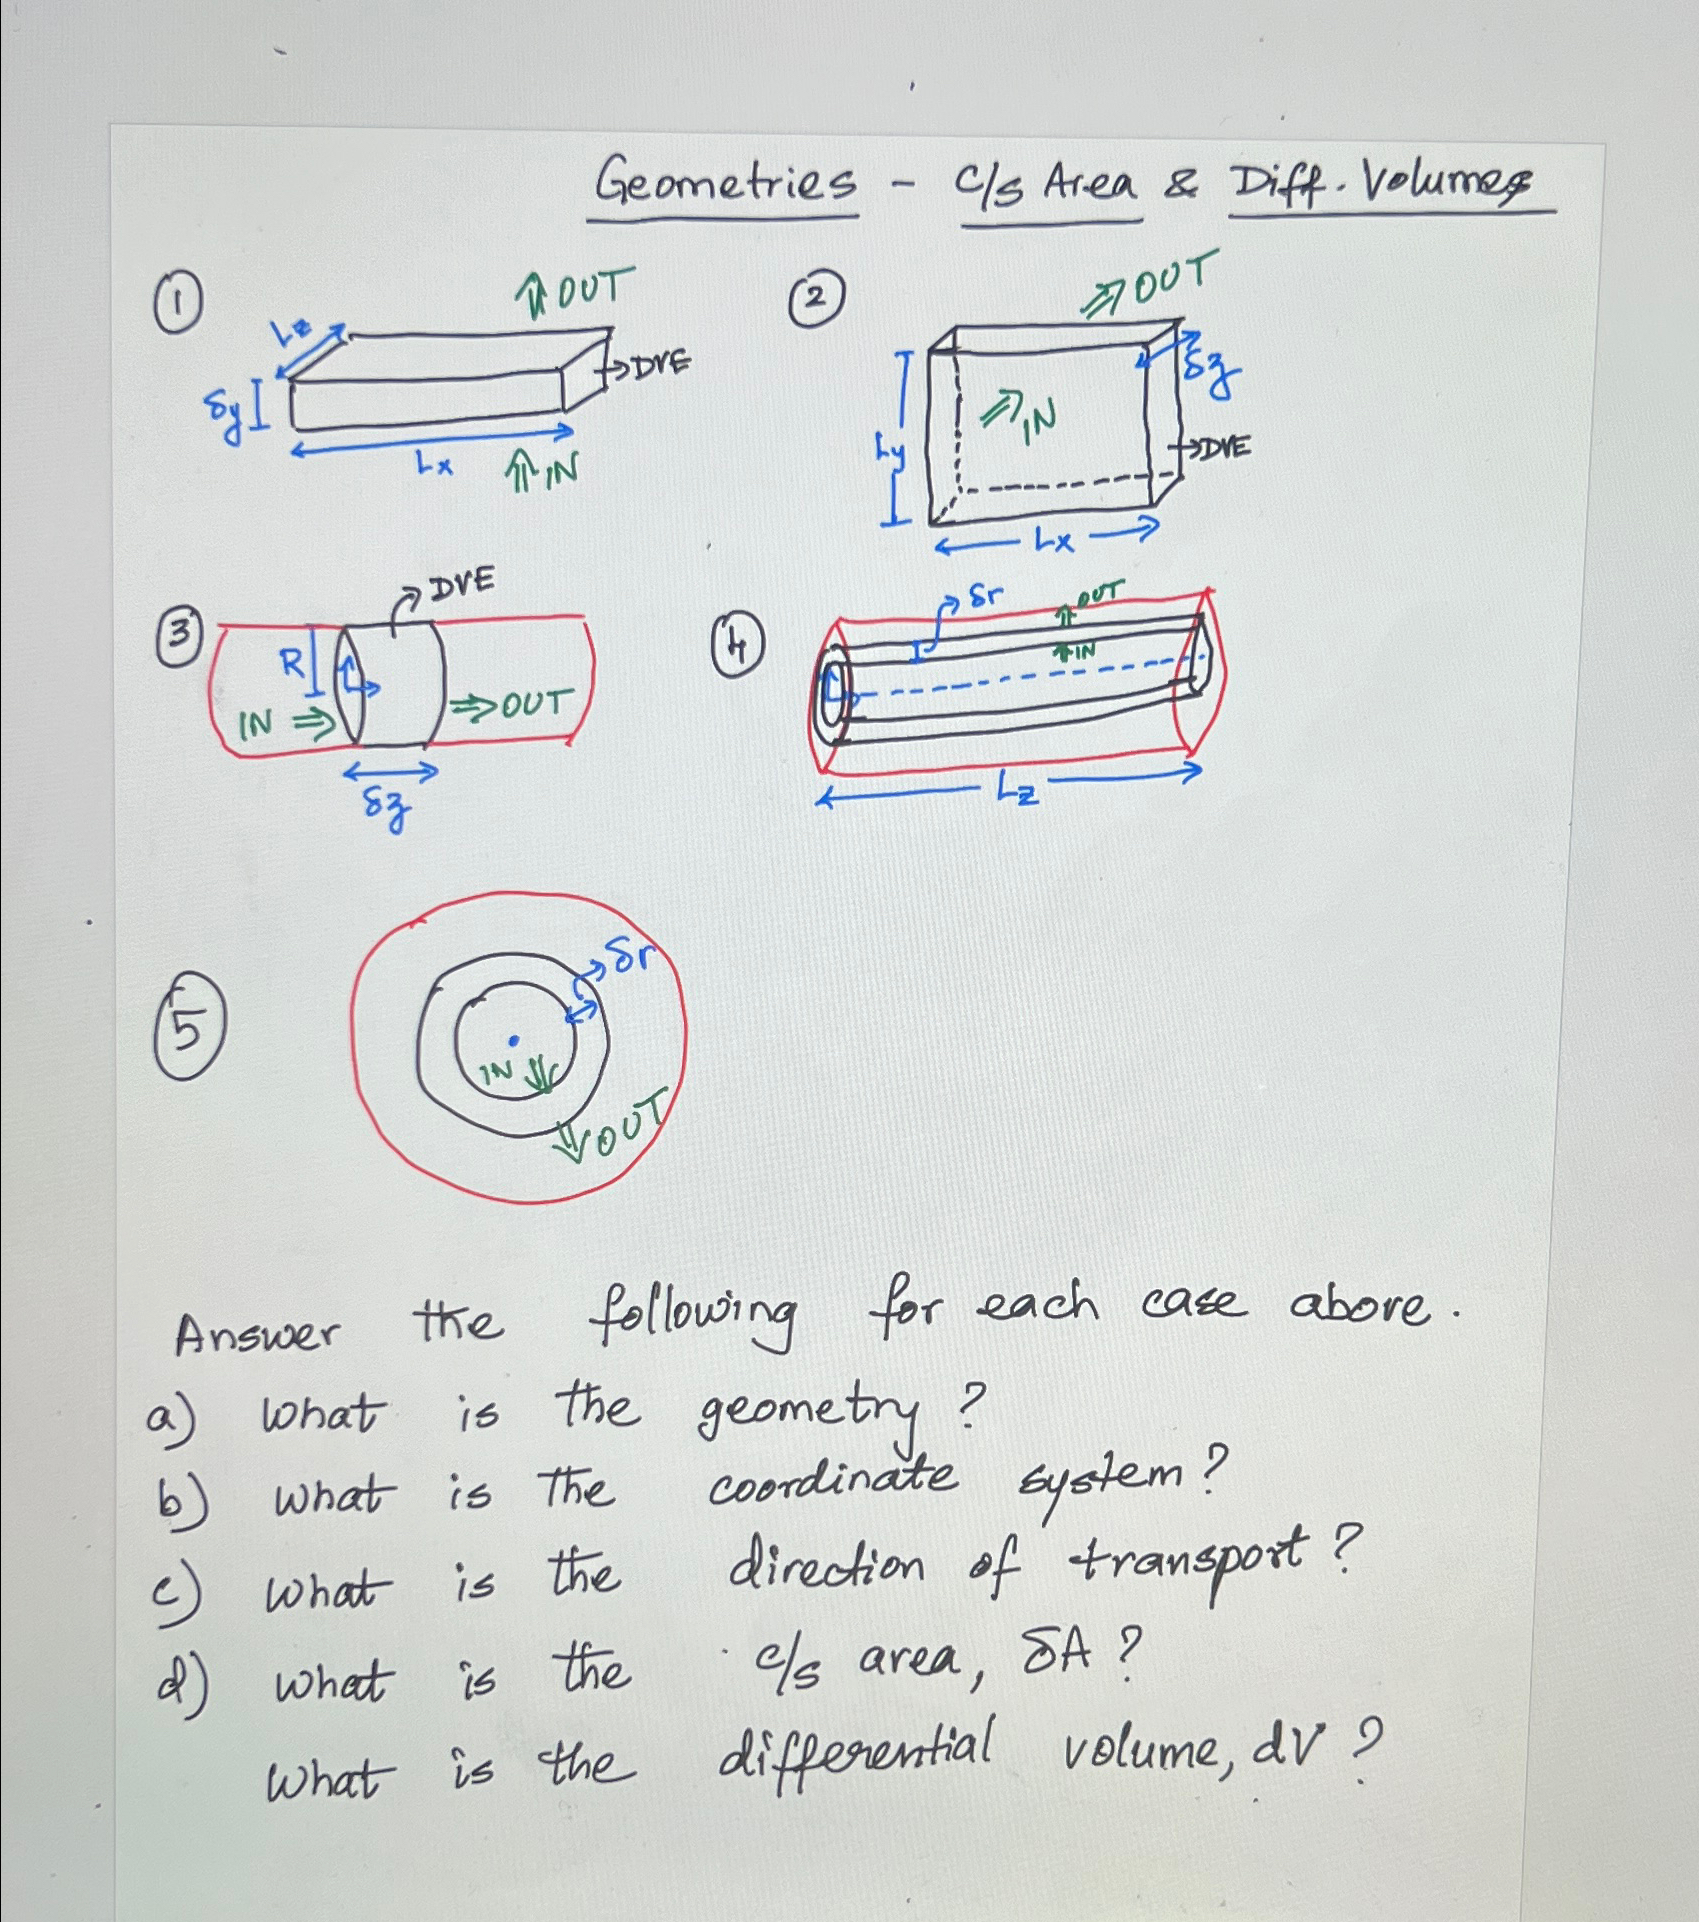 Geometries - C/s Area & Diff. Volumes
① ⇑ OUT
Lz
→DVE
δy
Lx
⇑ IN
② ⇒ OUT
δz
⇒ IN
Ly
→DVE
Lx
③ DVE
R
IN ⇒
⇒ OUT
δz
④ δr
⇑ OUT
⇑ IN
Lz
⑤ δr
IN ⇓
⇓ OUT
Answer the following for each case above.
a) What is the geometry?
b) What is the coordinate system?
c) What is the direction of transport?
d) What is the c/s area, δA?
What is the differential volume, dV?